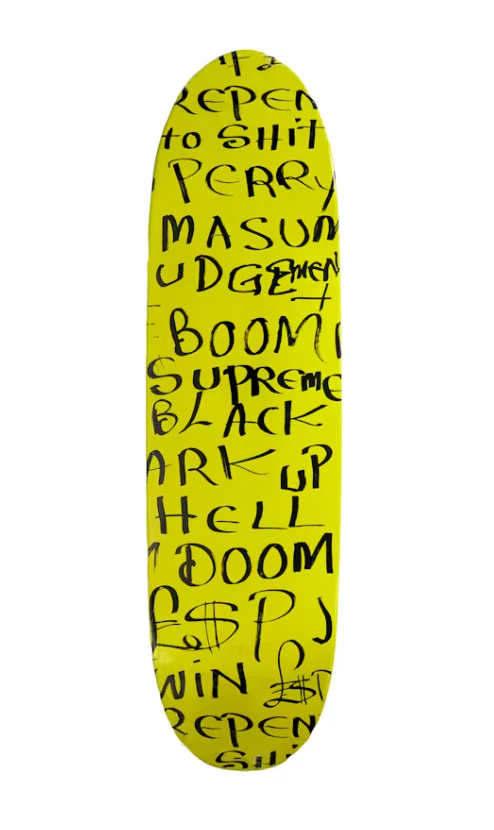 REPEN
to SHIT
PERRY
MASUM
UDGEMEN
t
BOOM
SUPREME
BLACK
ARK UP
HELL
DOOM
£$P J
WIN £$P
REPEN
SHI